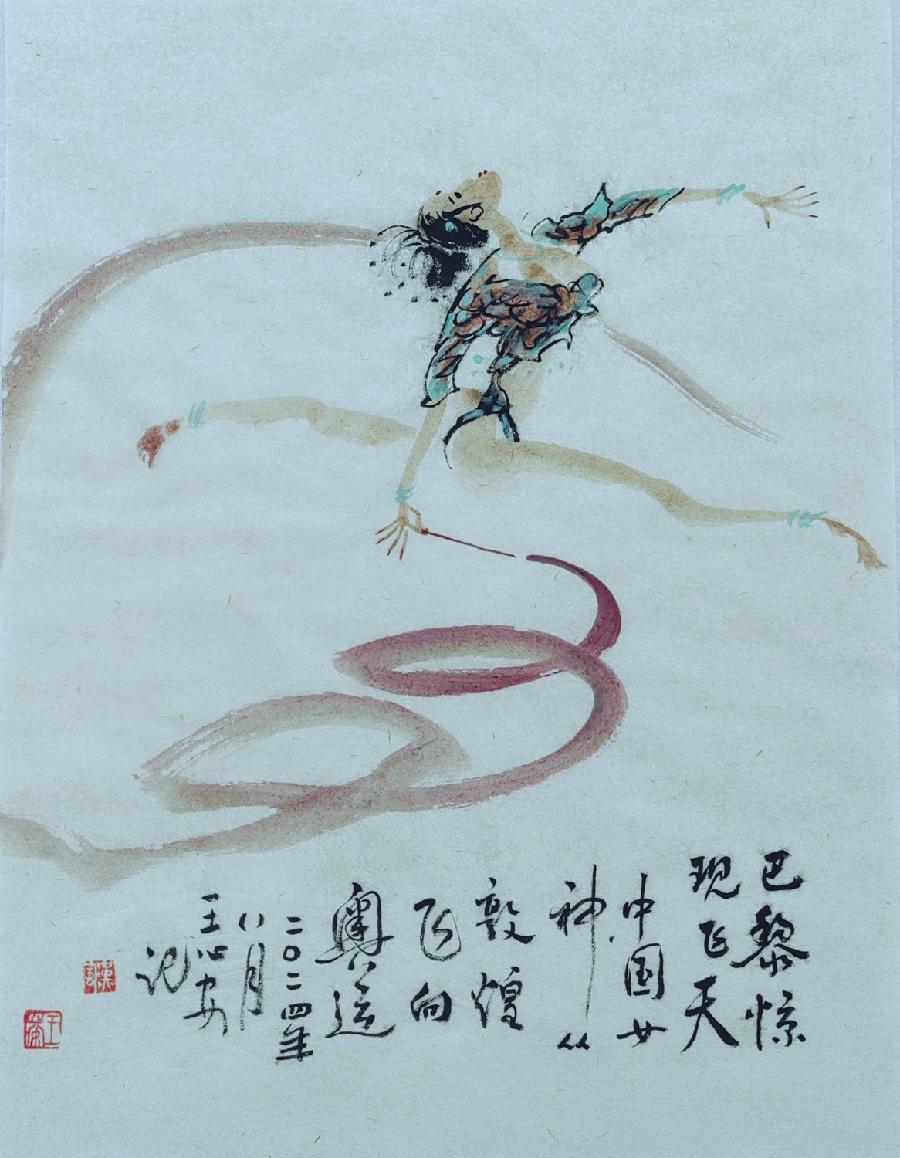 巴黎惊
现飞天
中国女
神
敦煌
飞向
奥运
二〇二四年
八月
王心安
记